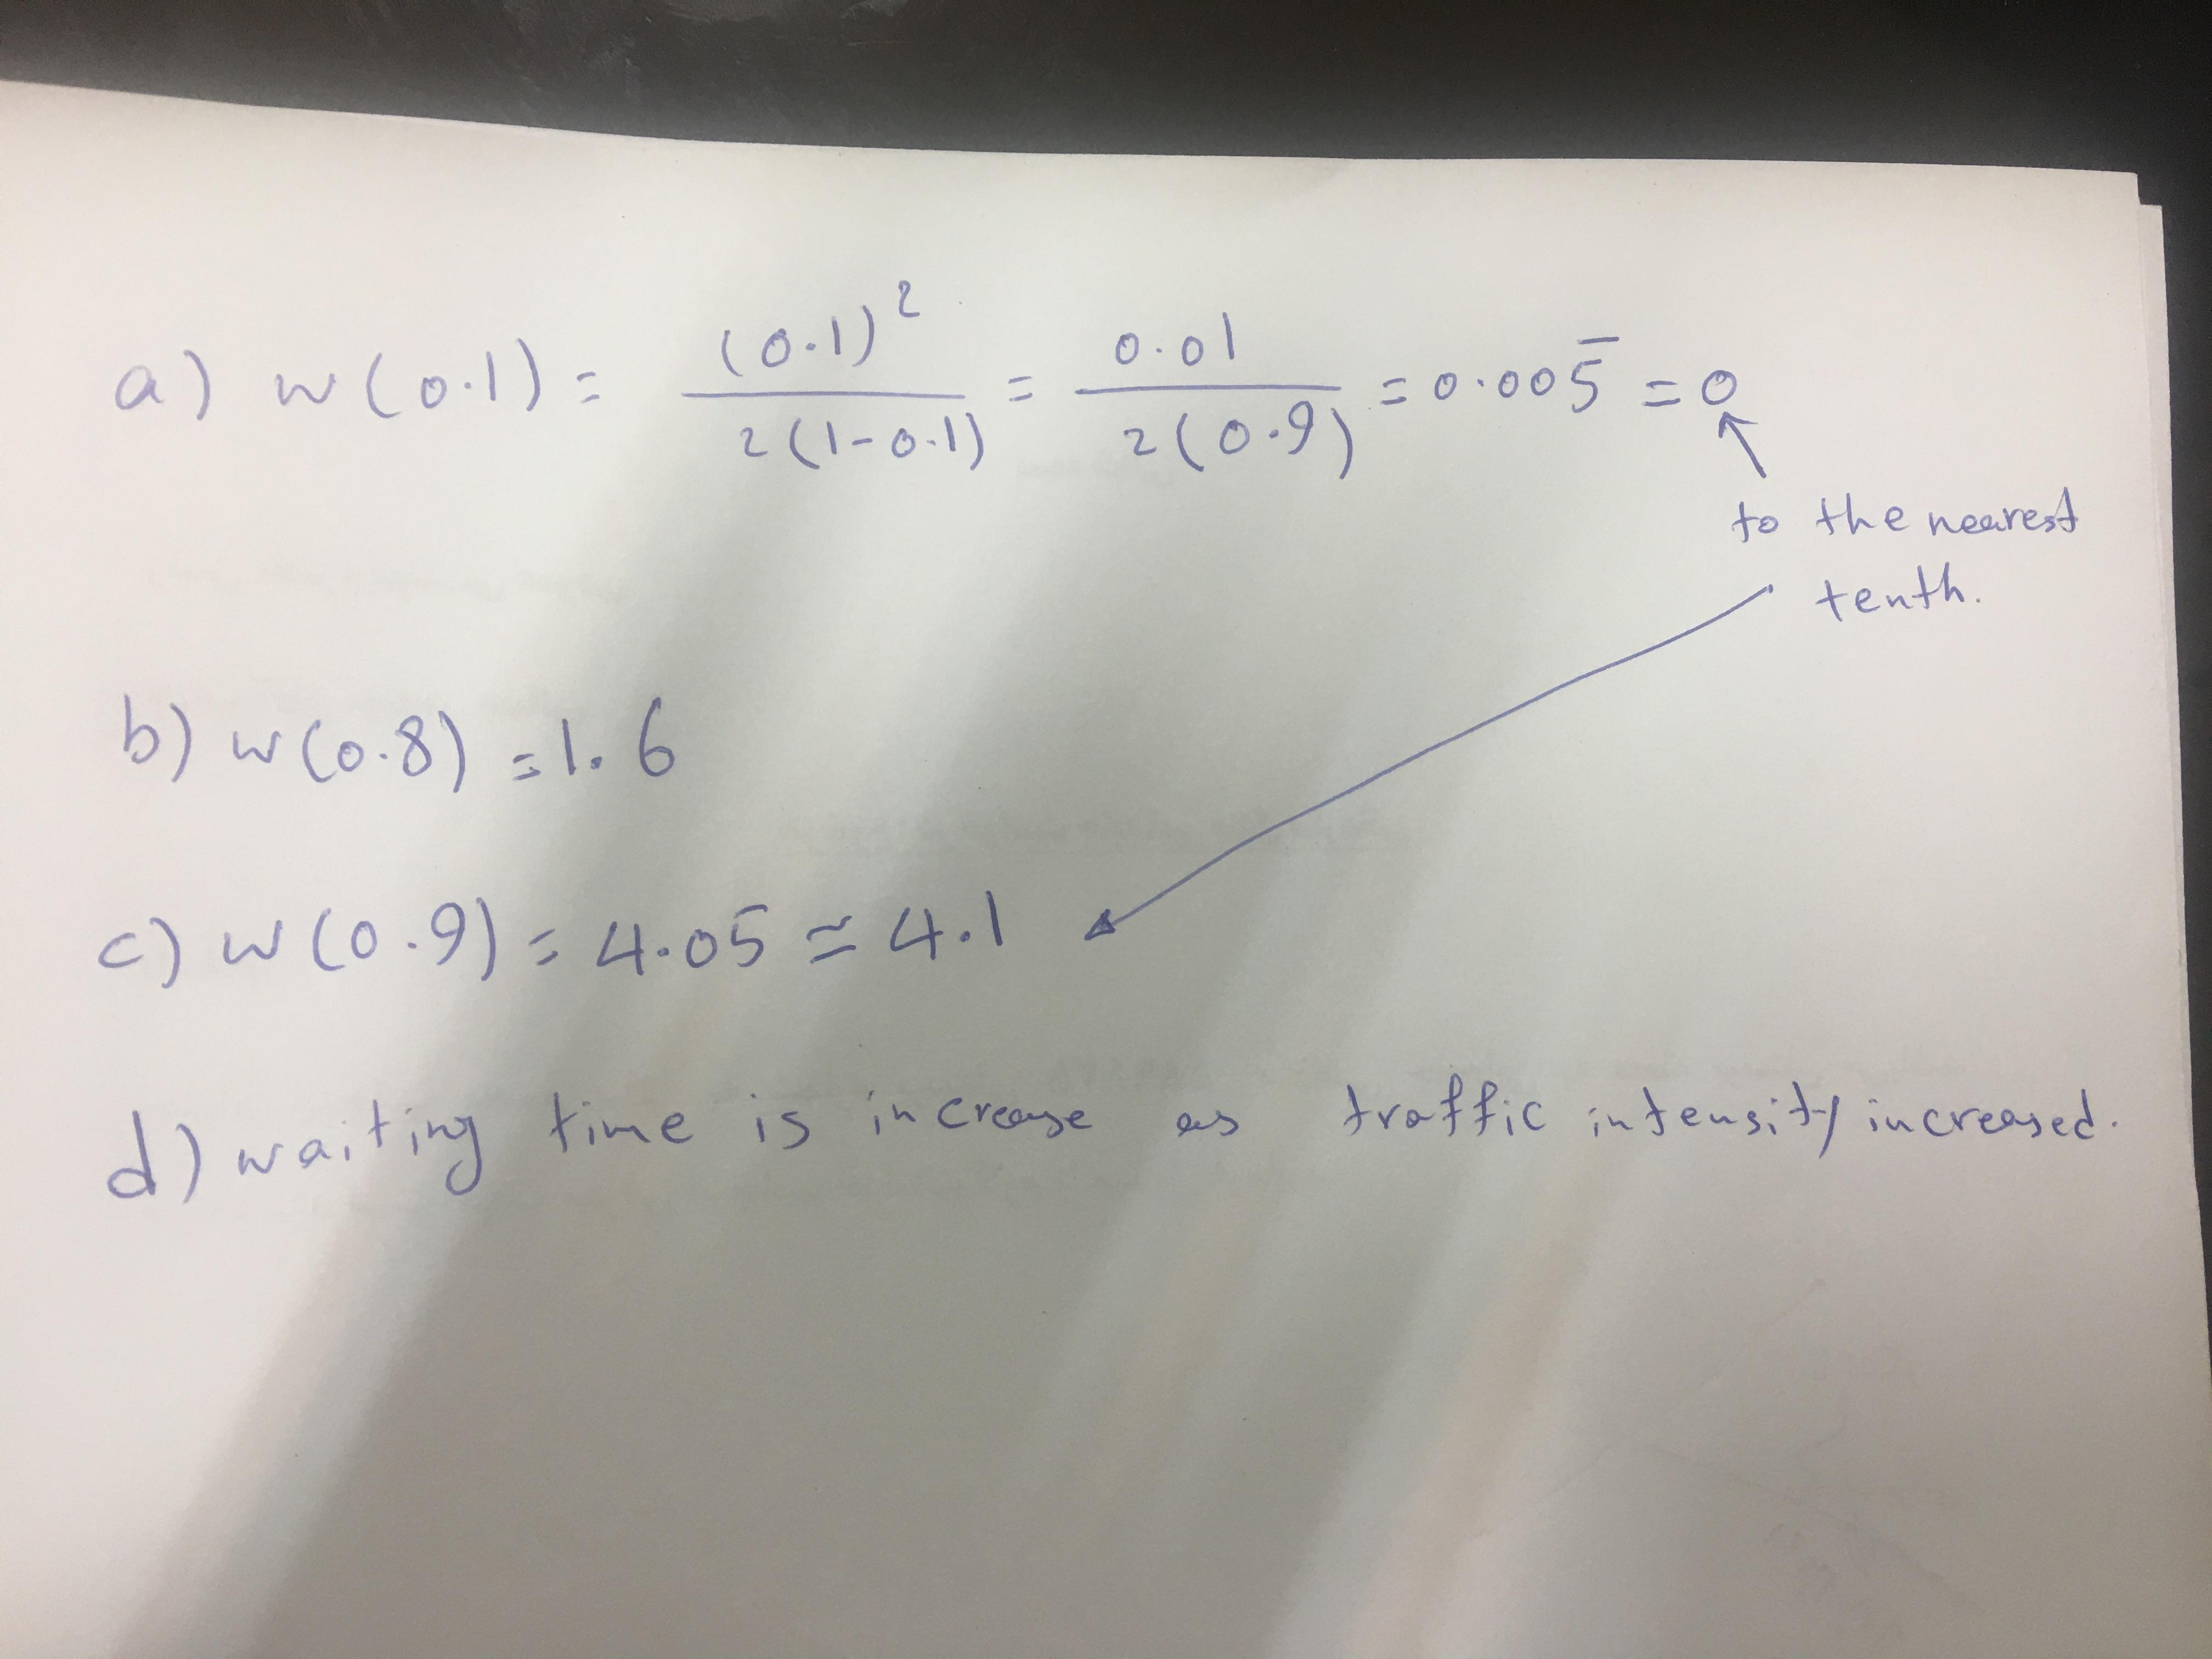 a) w(0.1) = (0.1)² / 2(1-0.1) = 0.01 / 2(0.9) = 0.005̅ = 0
to the nearest
tenth.
b) w(0.8) = 1.6
c) w(0.9) = 4.05 ≃ 4.1
d) waiting time is increase as traffic intensity increased.